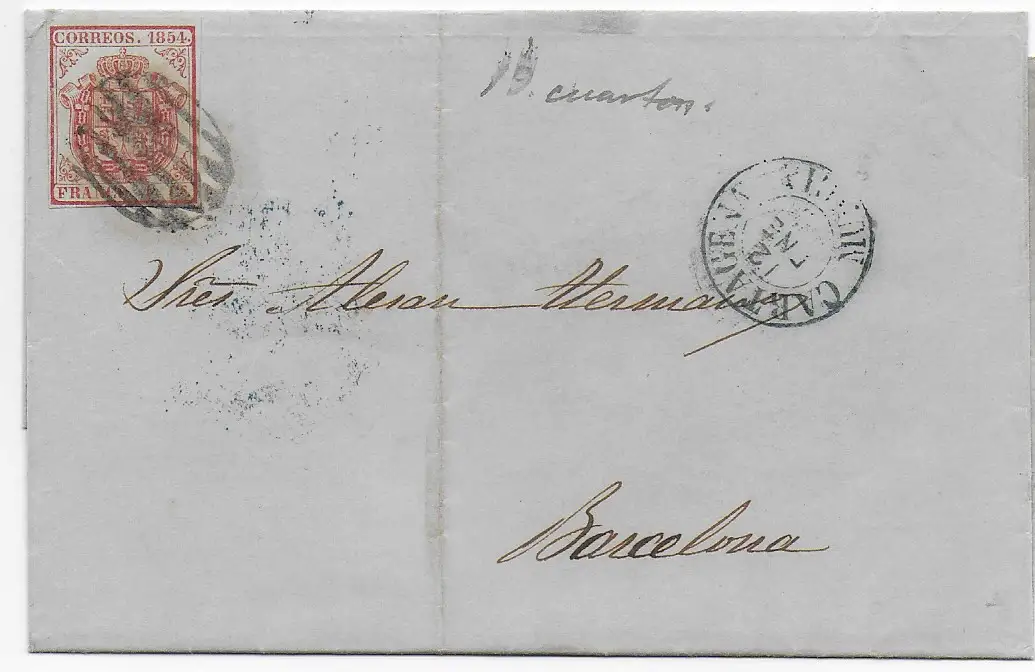 CORREOS. 1854.
cuartos.
CARTAGENA
Sres Alesan Hermanos
Barcelona